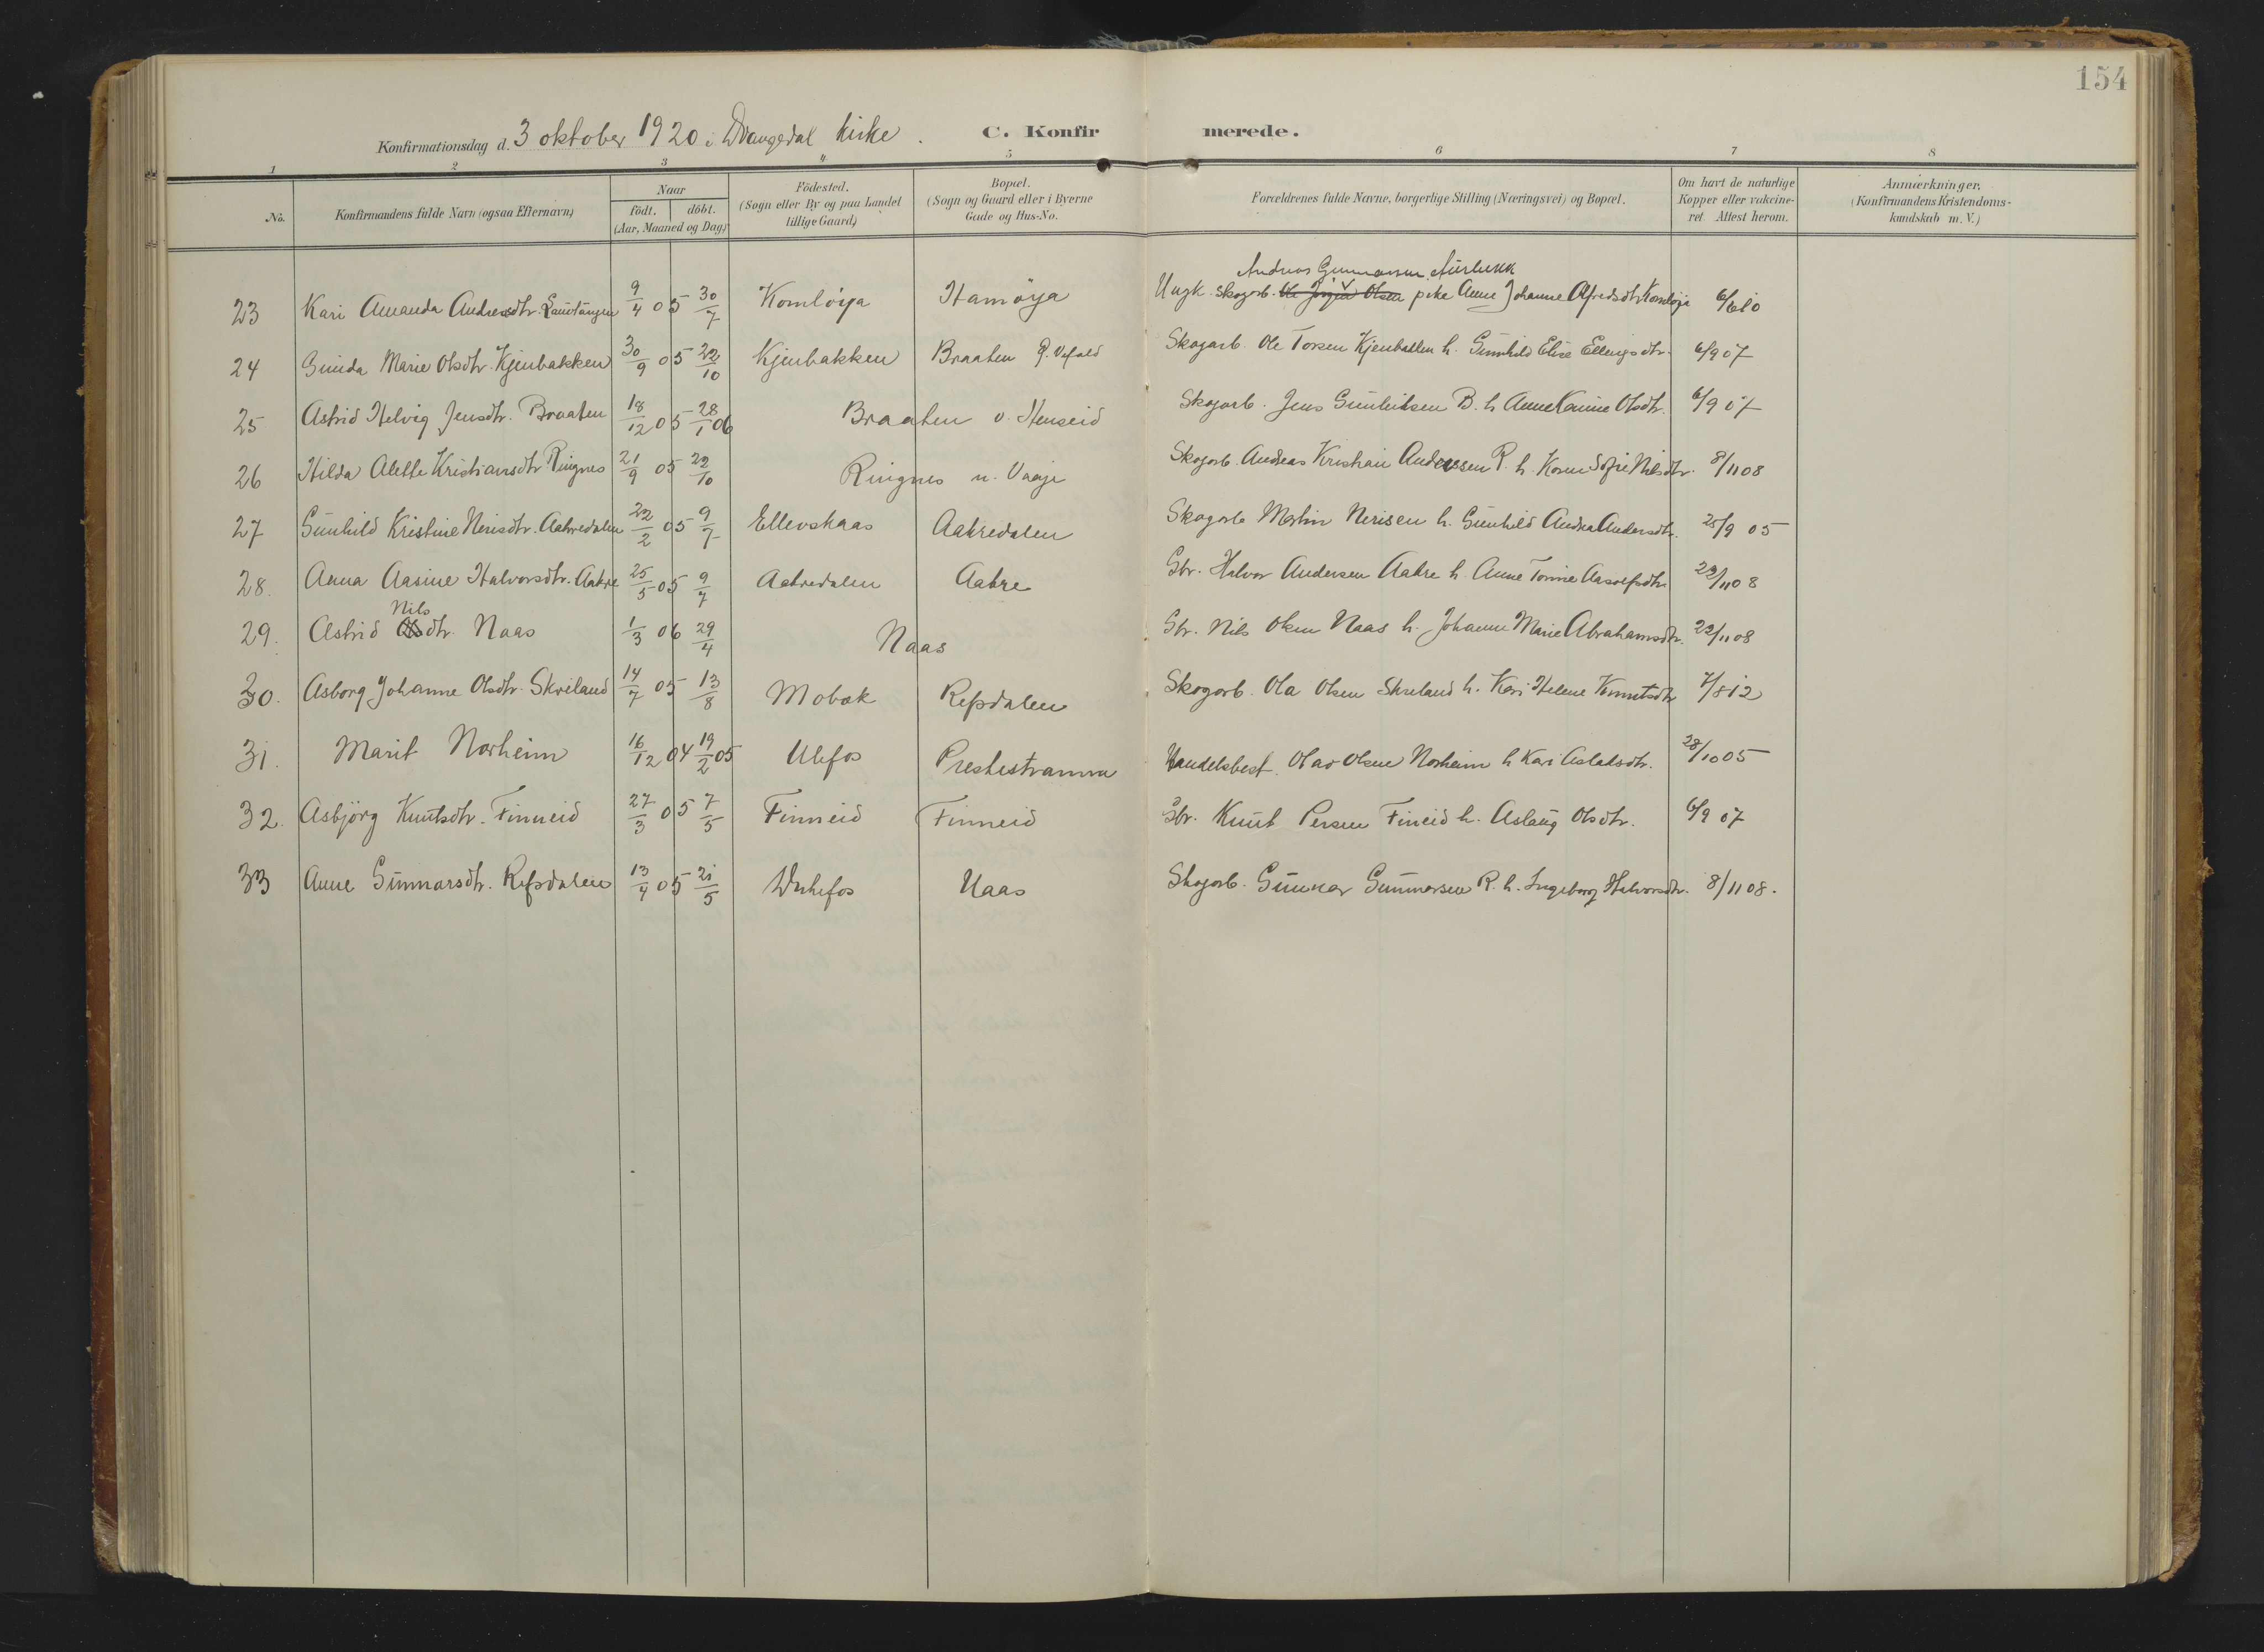 154
Konfirmationsdag d. 3 oktober 1920 i Drangedal kirke.
C. Konfirmerede.
1 2 3 4 5 6 7 8
No. Konfirmandens fulde Navn (ogsaa Efternavn) Naar födt. döbt. (Aar, Maaned og Dag) Födested. (Sogn eller By og paa Landet tillige Gaard) Bopæl. (Sogn og Gaard eller i Byerne Gade og Hus-No. Forældrenes fulde Navne, borgerlige Stilling (Næringsvei) og Bopæl. Om havt de naturlige Kopper eller vakcineret. Attest herom. Anmærkninger. (Konfirmandens Kristendomskundskab m. V.)
Andreas Gunnarsen
23 Kari Amanda Andreasdtr. 9/4 05 30/7 Komløya Hamøya Ungk skogarb. Ole Jørgen Olsen pike Anne Johanne Alfredsdtr Komløja 6/6 10
24 Gunda Marie Olsdtr. Kjenbakken 30/9 05 22/10 Kjenbakken Braaten Skogarb. Ole Torsen Kjenbakken h. Gunhild Elise Ellingsdtr. 6/9 07
25 Astrid Helvig Jensdtr. Braaten 18/12 05 28/1 06 Braaten v. Henseid Skogarb. Jens Gunleiksen B. h. Anne Karine Olsdtr. 6/9 07
26 Hilda Alette Kristiansdtr Ringnes 21/9 05 22/10 Ringnes n. Vaaje Skogarb. Andreas Kristian Anderssen R. h. Karen Sofie Nilsdtr. 8/11 08
27 Gunhild Kristine Nerisdtr. Aakredalen 22/2 05 9/7 Ellevskaas Aakredalen Skogarb Martin Nerisen h. Gunhild Andrea Andersdtr. 25/9 05
28. Anna Aasine Halvorsdtr. Aakre 25/5 05 9/7 Aakredalen Aakre Gbr. Halvor Andersen Aakre h. Anne Tomine Aasolfsdtr 22/11 08
Nils
29. Astrid Olsdtr. Naas 1/3 06 29/4 Naas Gbr. Nils Olsen Naas h. Johanne Marie Abrahamsdtr. 22/11 08
30. Asborg Johanne Olsdtr. Skreland 14/7 05 13/8 Mobæk Refsdalen Skogarb. Ola Olsen Skreland h. Kari Helene Knutsdtr 7/8 12
31. Marit Norheim 16/12 04 19/2 05 Ulefos Prestestranna Handelsbest. Olav Olsen Norheim h Kari Aslaksdtr. 28/10 05
32. Asbjörg Knutsdtr. Finneid 27/3 05 7/5 Finneid Finneid Gbr. Knut Persen Fineid h. Aslaug Olsdtr. 6/9 07
33 Anne Gunnarsdtr. Refsdalen 13/4 05 21/5 Naas Skogarb. Gunnar Gunnarsen R. h. Ingeborg Halvorsdtr. 8/11 08.